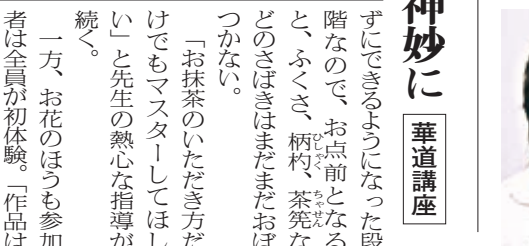 神妙に
華道講座
ずにできるようになった段
階なので、お点前となる
と、ふくさ、柄杓、茶筅な
ひしゃく
ちゃせん
どのさばきはまだまだおぼ
つかない。
「お抹茶のいただき方だ
けでもマスターしてほし
い」と先生の熱心な指導が
続く。
一方、お花のほうも参加
者は全員が初体験。「作品は